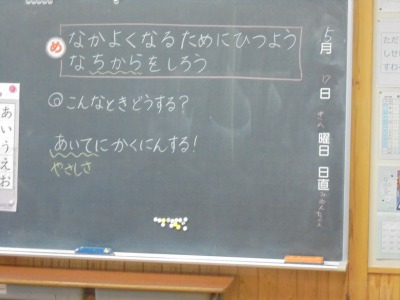 め なかよくなるためにひつよう
なちからをしろう
こんなときどうする?
あいてにかくにんする!
やさしさ
5月
17日
曜日
日直
あいうえお
ただ